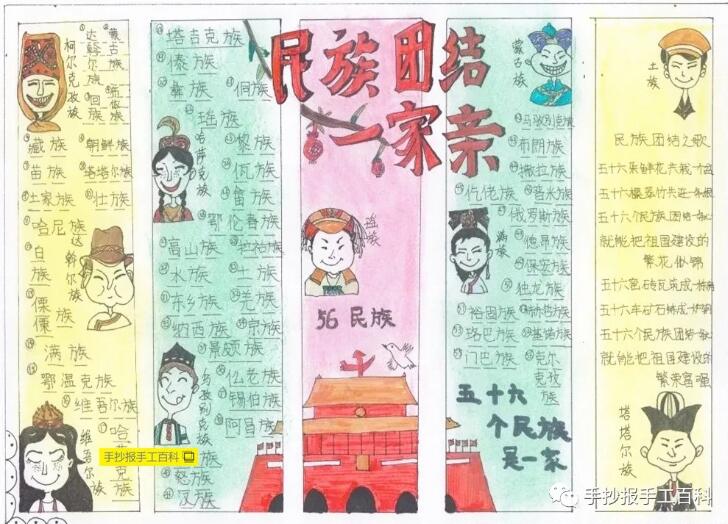 民族团结
一家亲
柯尔克孜族
达斡尔族
蒙古族
回族
藏族
朝鲜族
苗族
塔塔尔族
土家族
壮族
哈尼族
达斡尔族
白族
傈僳族
满族
鄂温克族
维吾尔族
维吾尔族
塔吉克族
傣族
彝族
侗族
瑶族
黎族
佤族
畲族
鄂伦春族
高山族
拉祜族
水族
土族
东乡族
羌族
纳西族
京族
景颇族
仫佬族
锡伯族
阿昌族
怒族
汉族
乌孜别克族
56民族
蒙古族
乌孜别克族
布朗族
撒拉族
仡佬族
普米族
俄罗斯族
德昂族
保安族
独龙族
裕固族
赫哲族
珞巴族
基诺族
门巴族
克尔克孜族
满族
五十六
个民族
是一家
土族
民族团结之歌
五十六个民族团结一
就能把祖国建设的
繁花似锦
五十六个民族团结一
就能把祖国建设的
繁荣富强
塔塔尔族
手抄报手工百科
手抄报手工百科